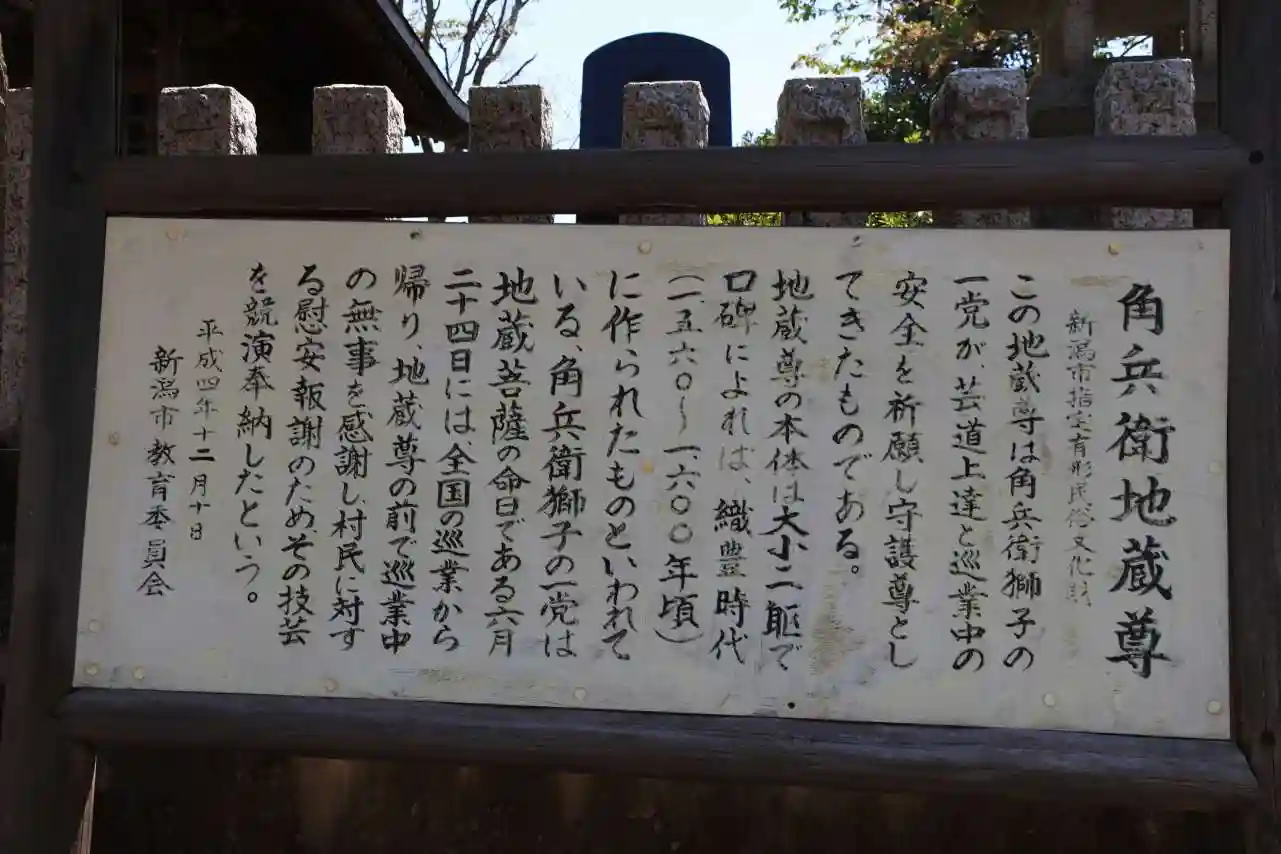 角兵衛地蔵尊
新潟市指定有形民俗文化財
この地蔵尊は角兵衛獅子の
一党が、芸道上達と巡業中の
安全を祈願し守護尊とし
てきたものである。
地蔵尊の本体は大小二躯で
口碑によれば、織豊時代
(一、五六〇〜一、六〇〇年頃)
に作られたものといわれて
いる、角兵衛獅子の一党は
地蔵菩薩の命日である六月
二十四日には、全国の巡業から
帰り、地蔵尊の前で巡業中
の無事を感謝し、村民に対す
る慰安報謝のため、その技芸
を競演奉納したという。
平成四年十二月十日
新潟市教育委員会